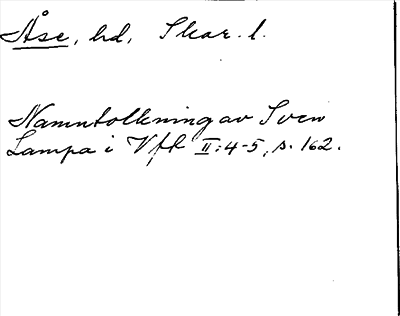 Åse, hd, Skar. l.
Namntolkning av Sven
Lampa i Vfk II:4-5, s. 162.